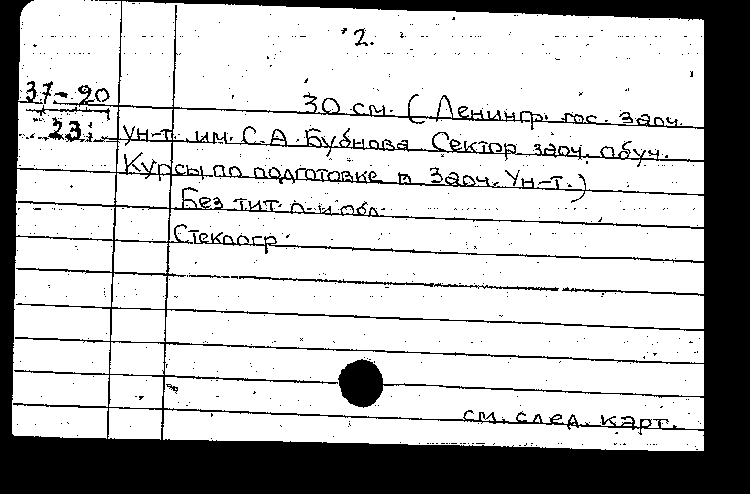 2.
37-20
23:
30 см. (Ленингр. гос. заоч.
ун-т. им. С.А. Бубнова Сектор заоч. обуч.
Курсы по подготовке в Заоч. Ун-т.)
Без тит. л. и обл.
Стеклогр.
см. след. карт.